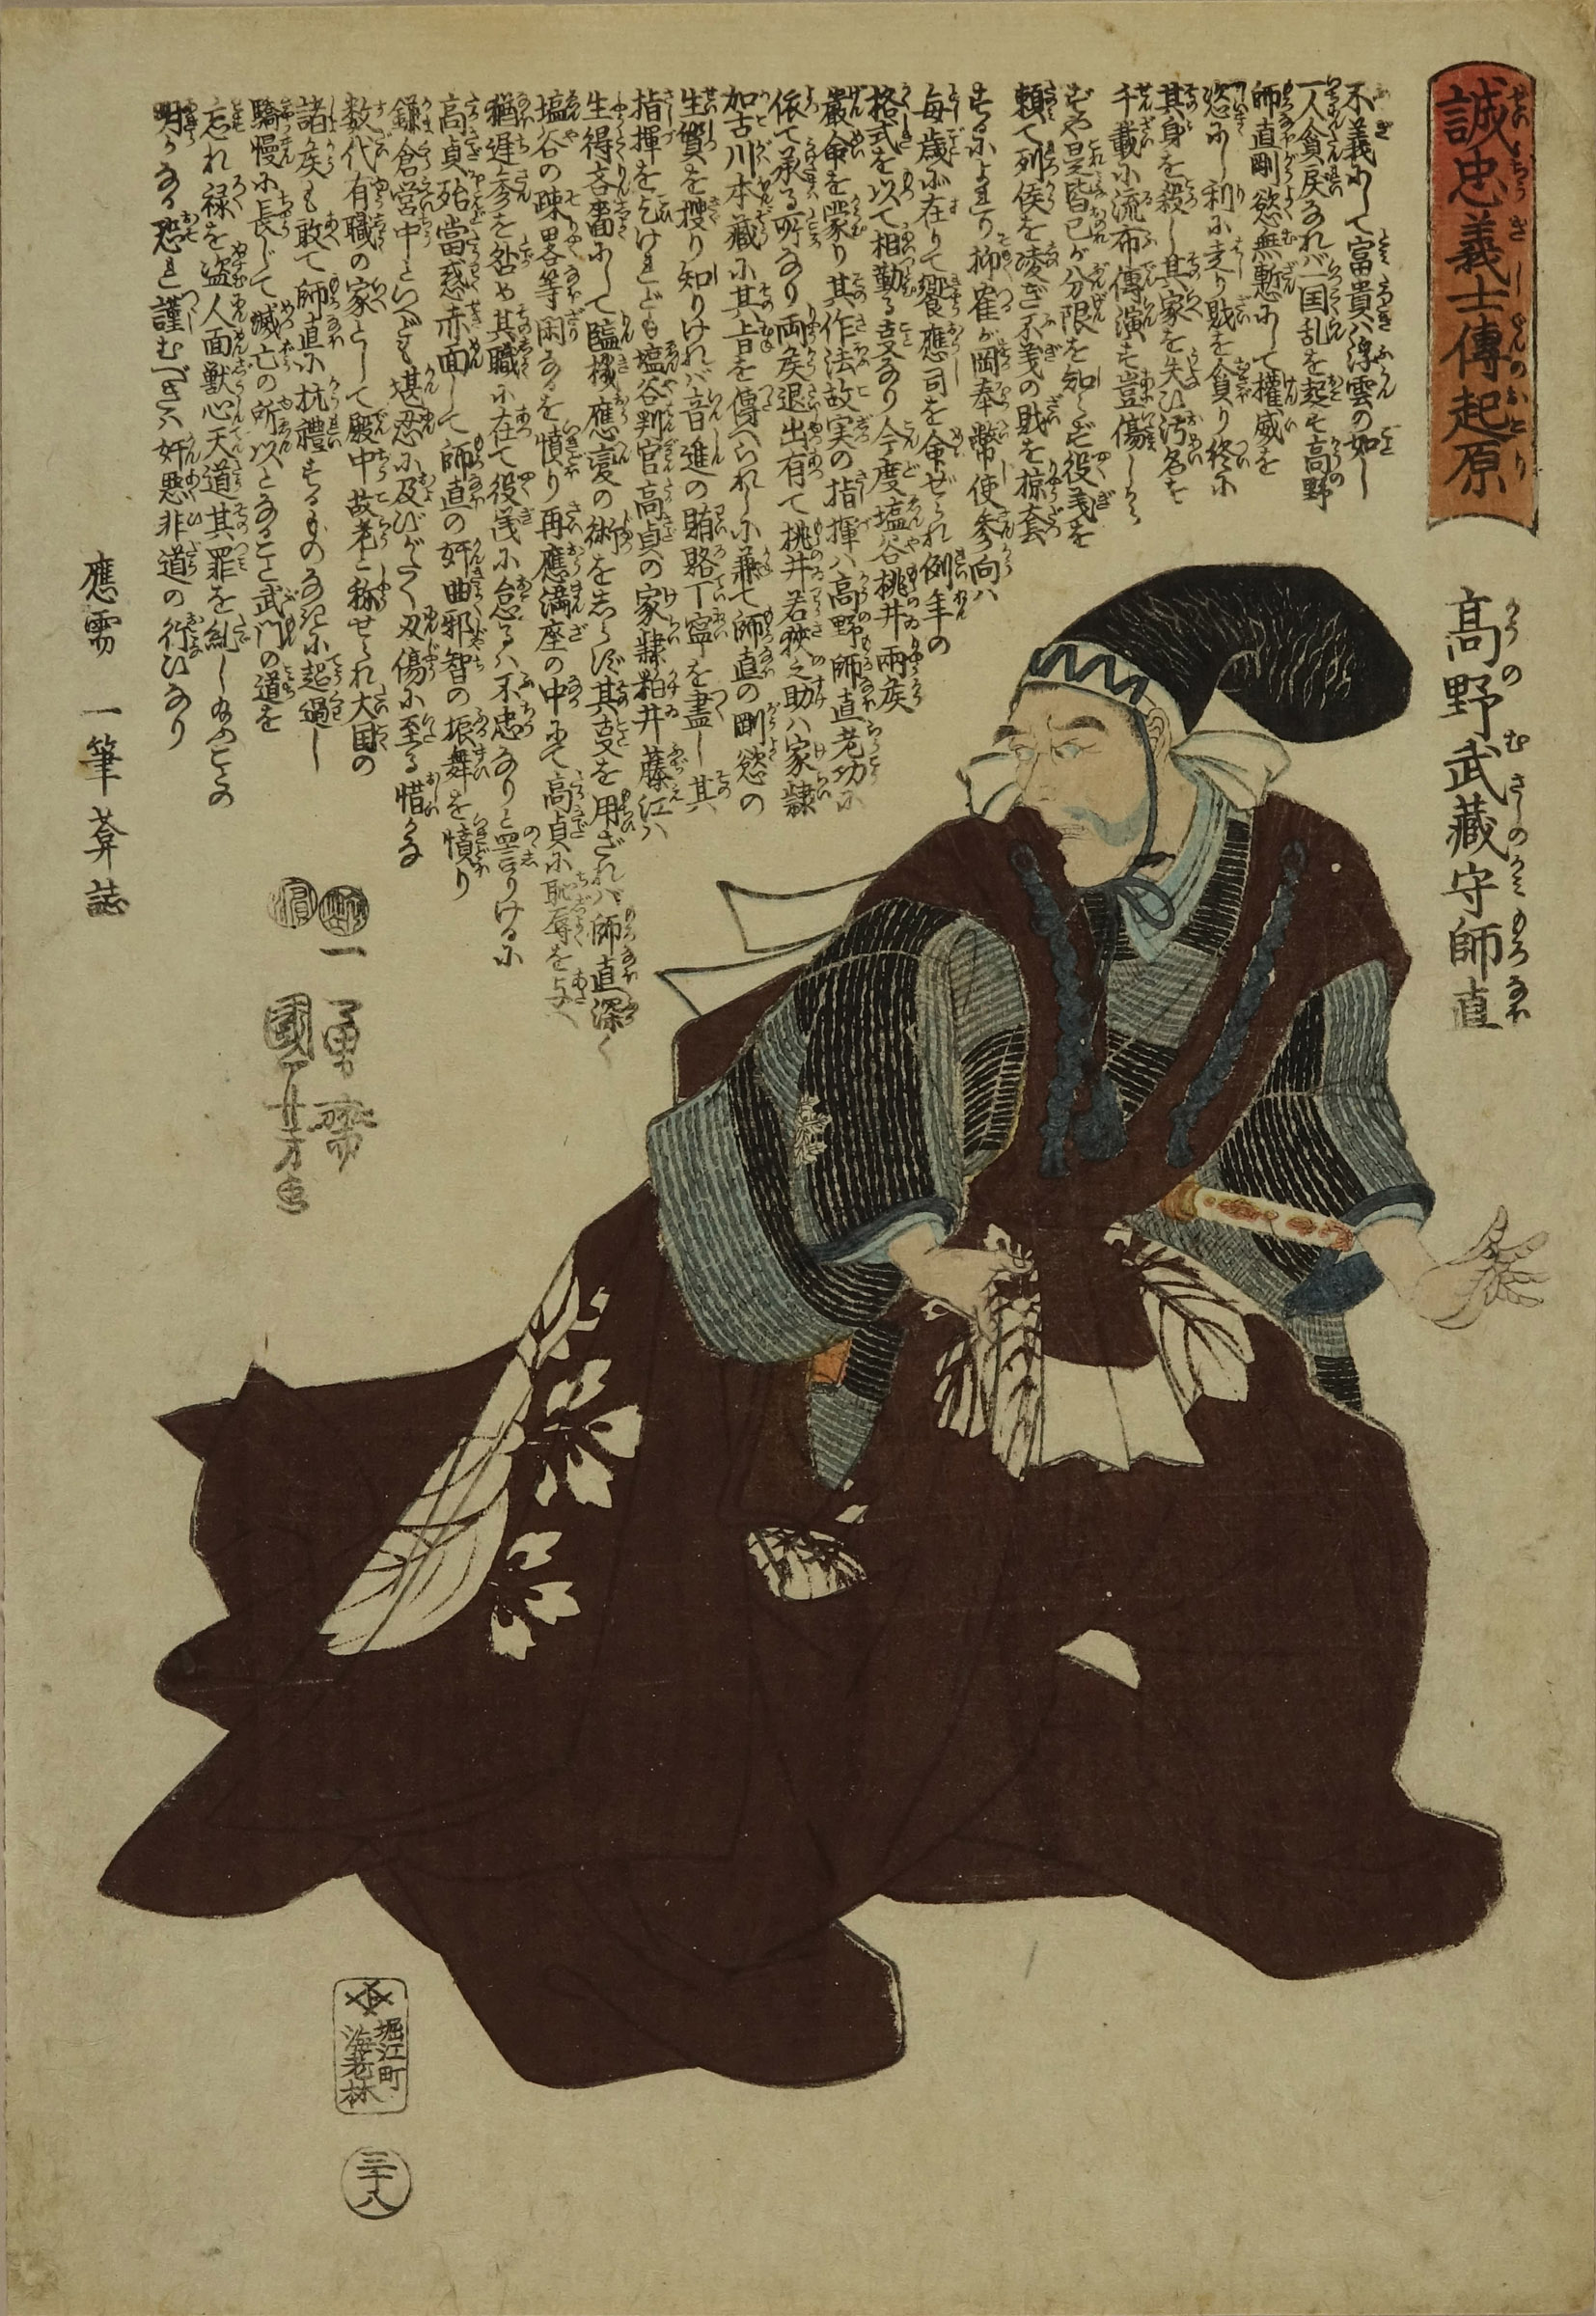 誠忠義士傳起原
高野武藏守師直
不義にして富貴ハ浮雲の如し
一人貪戻なれバ一国乱を起す高野
師直剛慾無慙にして權威を
恣にし利に走り賎を貪り終に
其身を殺し其家を失ひ汚名を
千載に流布傳演す豈傷しから
ずや是皆己が分限を知らず役義を
頼て列侯を凌ぎ不義の財を掠奪
するによれり抑雀が岡奉幣使参向ハ
毎歳に在りて饗應司を命ぜられ例年の
格式を以て相勤る支なり今度塩谷桃井両矦
嚴命を蒙り其作法故実の指揮ハ高野師直老功に
依て承る所なり両矦退出有て桃井若狹之助ハ家隷
加古川本藏に其旨を傳へられしに兼て師直の剛慾の
生質を捜り知りけれバ音進の賄賂丁寧を盡し其
指揮を乞けれども塩谷判官高貞の家隷粕井藤江ハ
生得吝嗇にして臨機應変の術をしらず其支を用ざれバ師直深く
塩谷の疎畧等閑なるを憤り再應満座の中にて高貞に恥辱を与へ
猶遅参を咎め其職に在て役義に怠るハ不忠なりと罵りけるに
高貞殆當惑赤面して師直の奸曲邪智の振舞を憤り
鎌倉営中といへども堪忍に及びがたく刄傷に至る惜かな
数代有職の家として殿中故老と称せられ大国の
諸矦も敢て師直に抗禮するものなきに起過し
驕慢に長じて滅亡の所以となること武門の道を
忘れ禄を盗人面獣心天道其罪を糺し給ふことの
明かなる恐れ謹むべきハ奸悪非道の行ひなり
應需　一筆葊誌
一勇齋
國芳画
堀江町
海老林
三十八